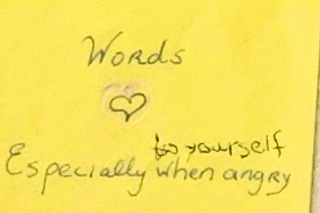 Words
to yourself
Especially when angry